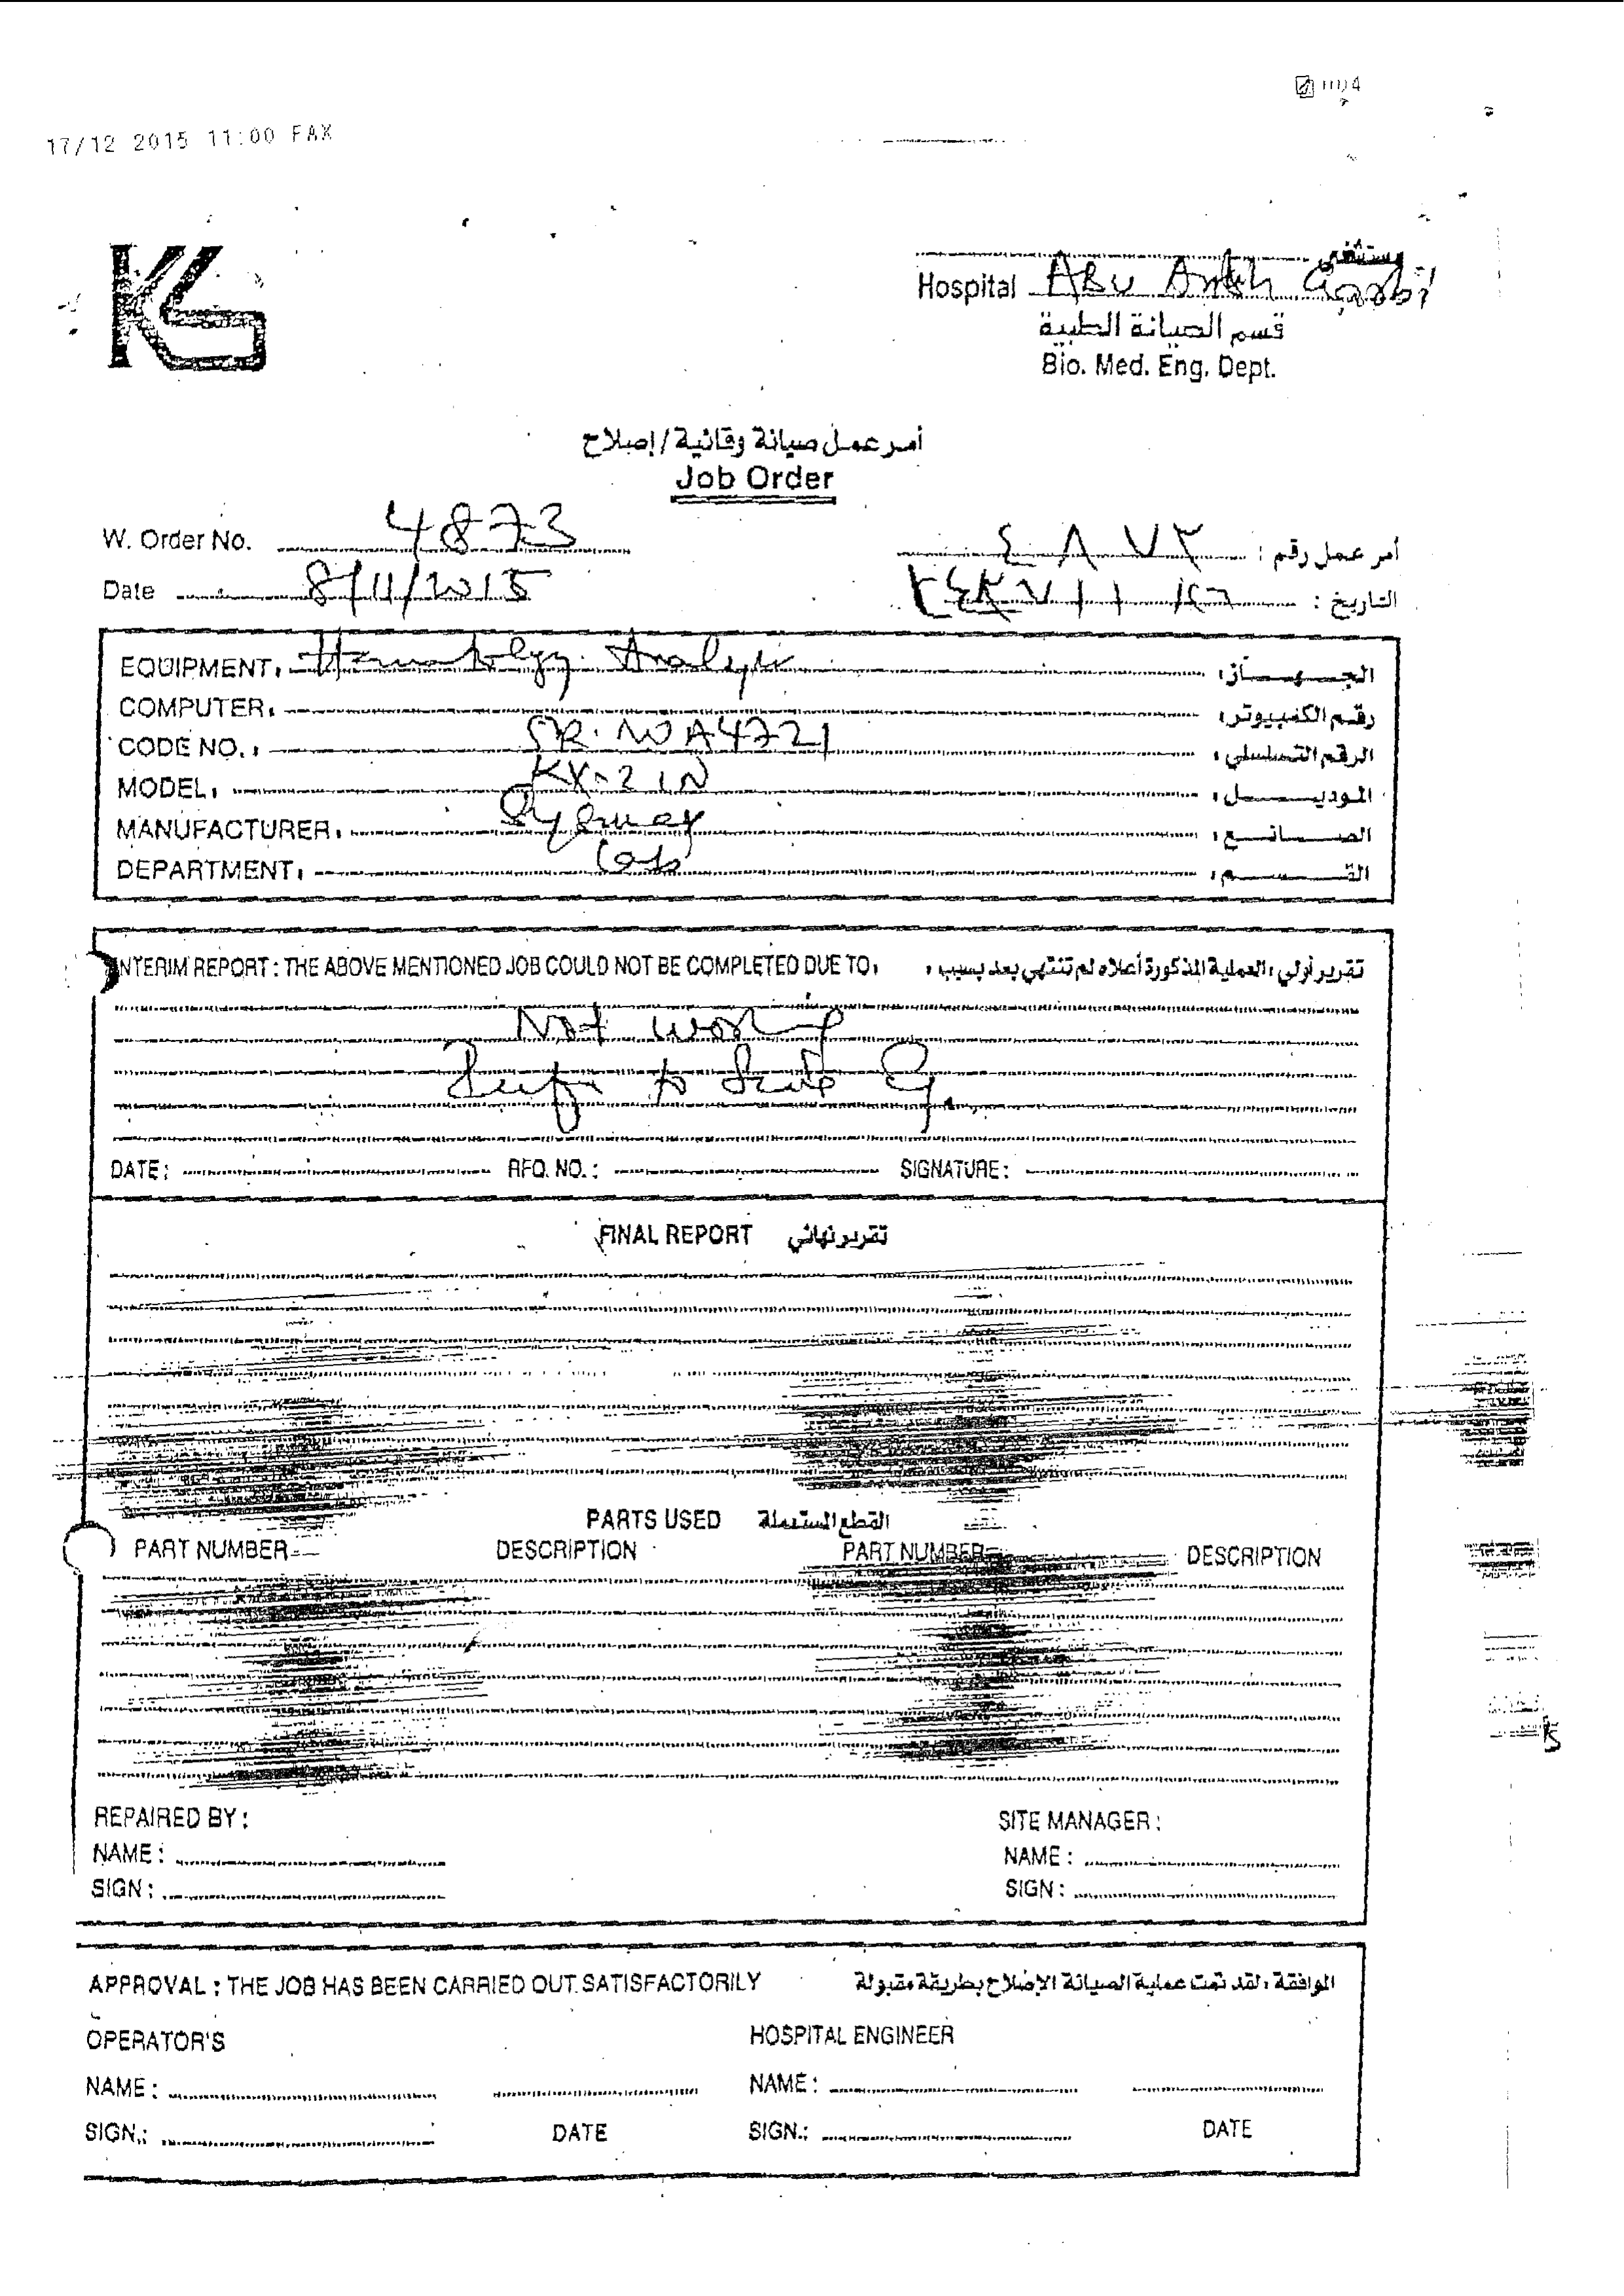 17/12 2015 11:00 FAX
KG
مستشفى
Hospital Abu Arish
قسم الصيانة الطبية
Bio. Med. Eng. Dept.
أمر عمل صيانة وقائية / إصلاح
Job Order
W. Order No. 4873 أمر عمل رقم : ٤٨٧٣
Date 8/11/2015 التاريخ :
EQUIPMENT: Hematology Analyzer الجهاز:
COMPUTER: رقم الكمبيوتر:
CODE NO. : SR. NO A4721 الرقم التسلسلي:
MODEL: KX-21N الموديل:
MANUFACTURER: Sysmex الصانع:
DEPARTMENT: Lab القسم:
INTERIM REPORT : THE ABOVE MENTIONED JOB COULD NOT BE COMPLETED DUE TO: تقرير أولي : العملية المذكورة أعلاه لم تنتهي بعد بسبب :
Not working
to
DATE : RFQ. NO. : SIGNATURE :
FINAL REPORT تقرير نهائي
PARTS USED القطع المستعملة
PART NUMBER DESCRIPTION PART NUMBER DESCRIPTION
REPAIRED BY : SITE MANAGER :
NAME : NAME :
SIGN : SIGN :
APPROVAL : THE JOB HAS BEEN CARRIED OUT SATISFACTORILY الموافقة : لقد تمت عملية الصيانة الإصلاح بطريقة مقبولة
OPERATOR'S HOSPITAL ENGINEER
NAME : NAME :
SIGN.: DATE SIGN.: DATE